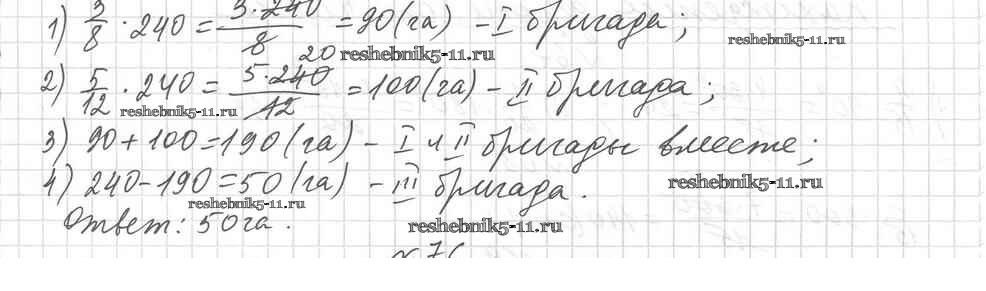 1) 3/8 · 240 = 3·240/8 = 90 (га) – I бригада;
reshebnik5-11.ru
20 reshebnik5-11.ru
2) 5/12 · 240 = 5·240/12 = 100 (га) – II бригада;
reshebnik5-11.ru
3) 90 + 100 = 190 (га) – I и II бригады вместе;
4) 240 – 190 = 50 (га) – III бригада.
reshebnik5-11.ru
reshebnik5-11.ru
Ответ: 50 га.
reshebnik5-11.ru